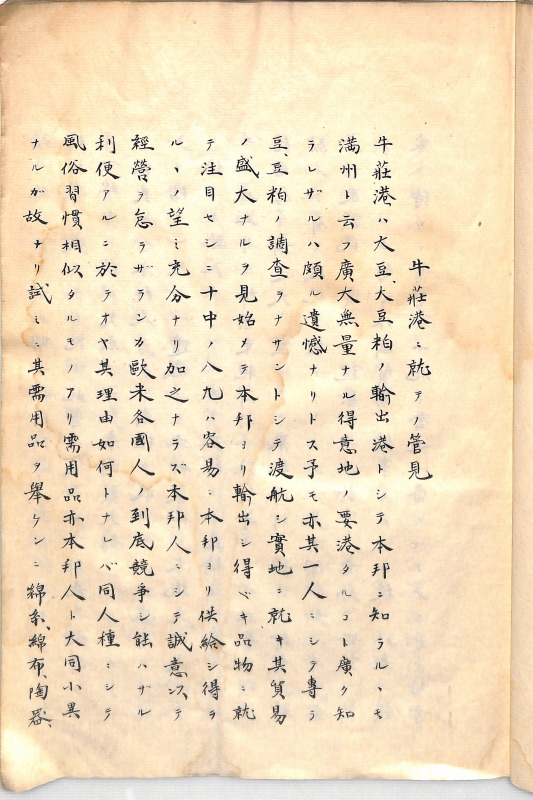 牛莊港ニ就テノ管見
牛莊港ハ大豆、大豆粕ノ輸出港トシテ本邦ニ知ラルヽモ
満州ト云フ廣大無量ナル得意地ノ要港タルコト廣ク知
ラレザルハ頗ル遺憾ナリトス予モ亦其一人ニシテ專ラ
豆、豆粕ノ調査ヲナサントシテ渡航シ實地ニ就キ其貿易
ノ盛大ナルヲ見始メテ本邦ヨリ輸出シ得ベキ品物ニ就
テ注目セシニ十中ノ八九ハ容易ニ本邦ヨリ供給シ得ラ
ルヽノ望ミ充分ナリ加之ナラズ本邦人ニシテ誠意以テ
經營ヲ怠ラザランカ歐米各國人ノ到底競爭シ能ハザル
利便アルニ於テオヤ其理由如何トナレバ同人種ニシテ
風俗習慣相似タルモノアリ需用品亦本邦人ト大同小異
ナルガ故ナリ試ミニ其需用品ヲ舉ケンニ綿糸、綿布、陶器、